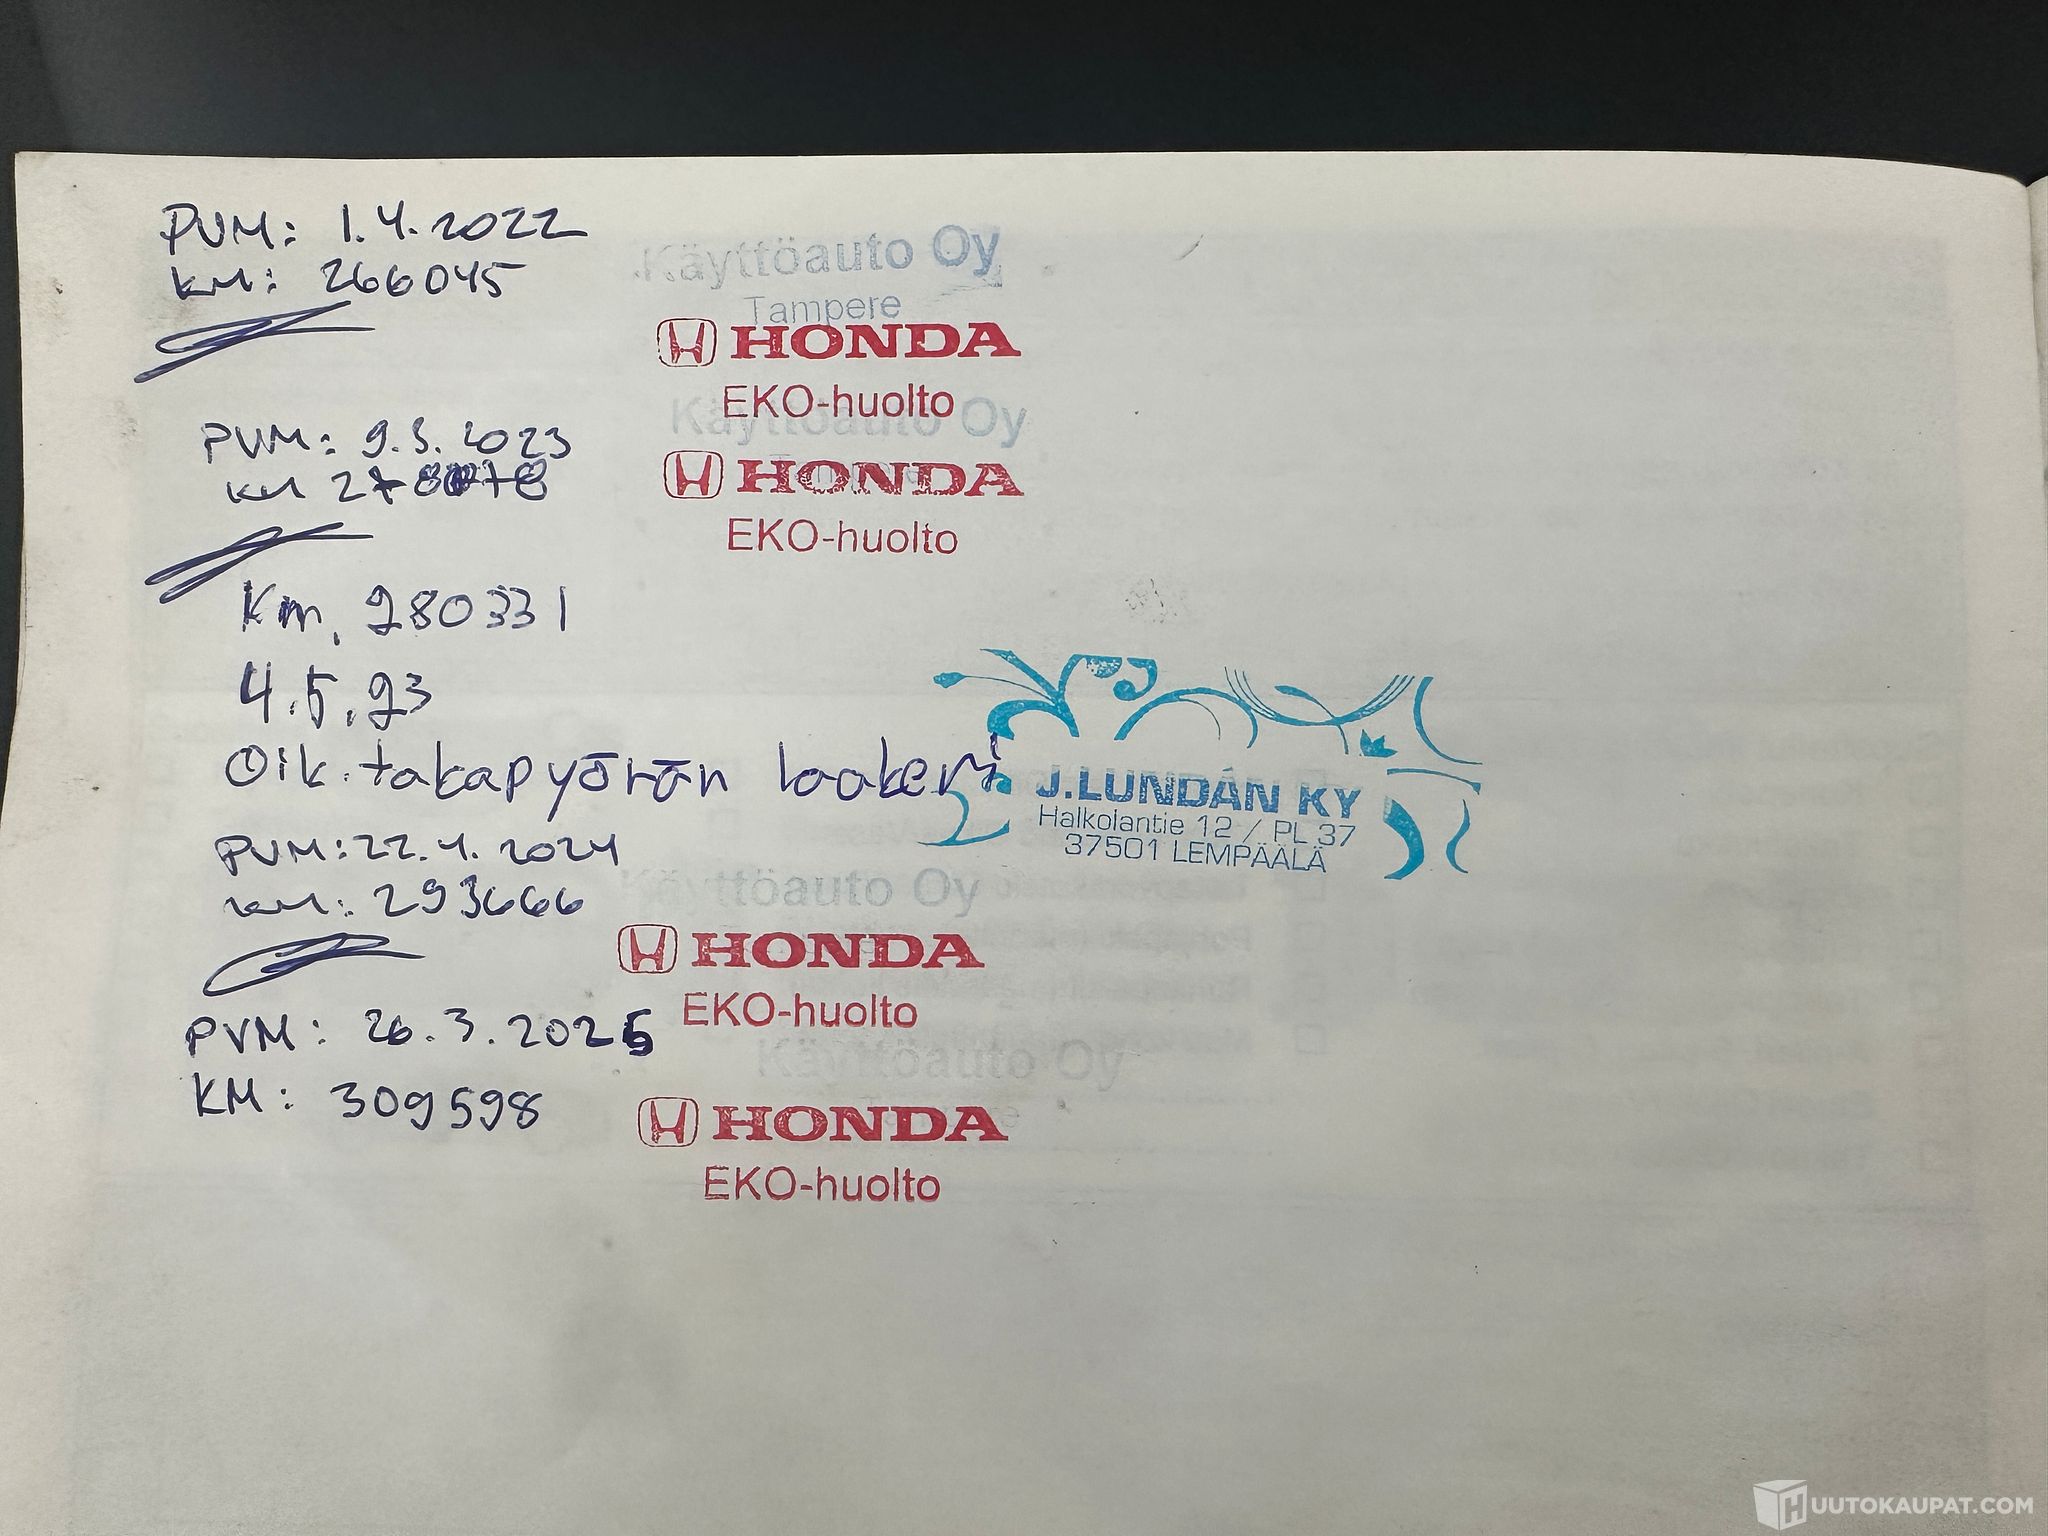 PVM: 1.4.2022
KM: 266045
Käyttöauto Oy
Tampere
HONDA
EKO-huolto
PVM: 9.3.2023
KM
Käyttöauto Oy
HONDA
EKO-huolto
Km. 280331
4.5.23
Oik. takapyörän laakeri
J.LUNDÁN KY
Halkolantie 12 / PL 37
37501 LEMPÄÄLÄ
PVM: 22.4.2024
KM: 293666
Käyttöauto Oy
HONDA
EKO-huolto
PVM: 26.3.2025
KM: 309598
Käyttöauto Oy
HONDA
EKO-huolto
UUTOKAUPAT.COM